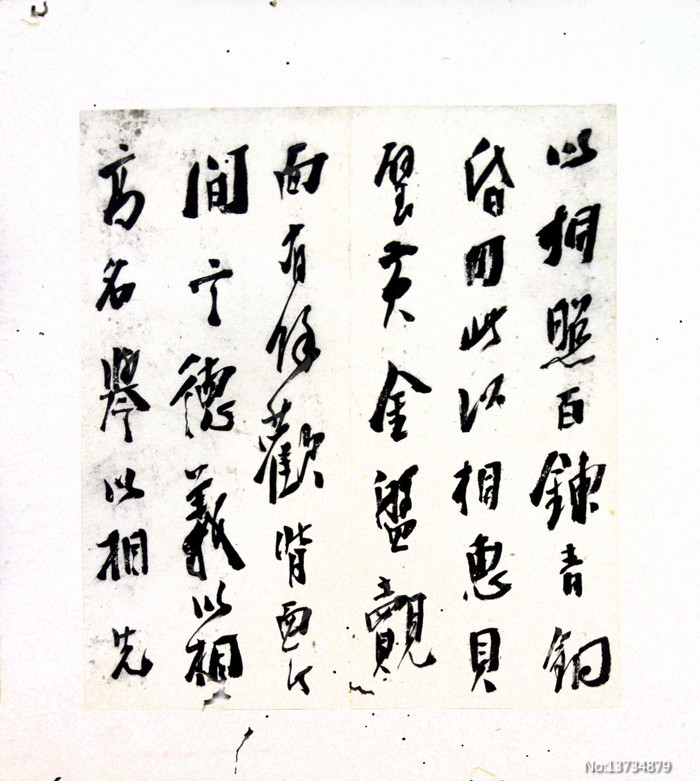 以相照百鍊青銅
此以相惠貝
璧黄金盤覿
面有餘歡背面
間言德義以相
高名譽以相先
No:13734879